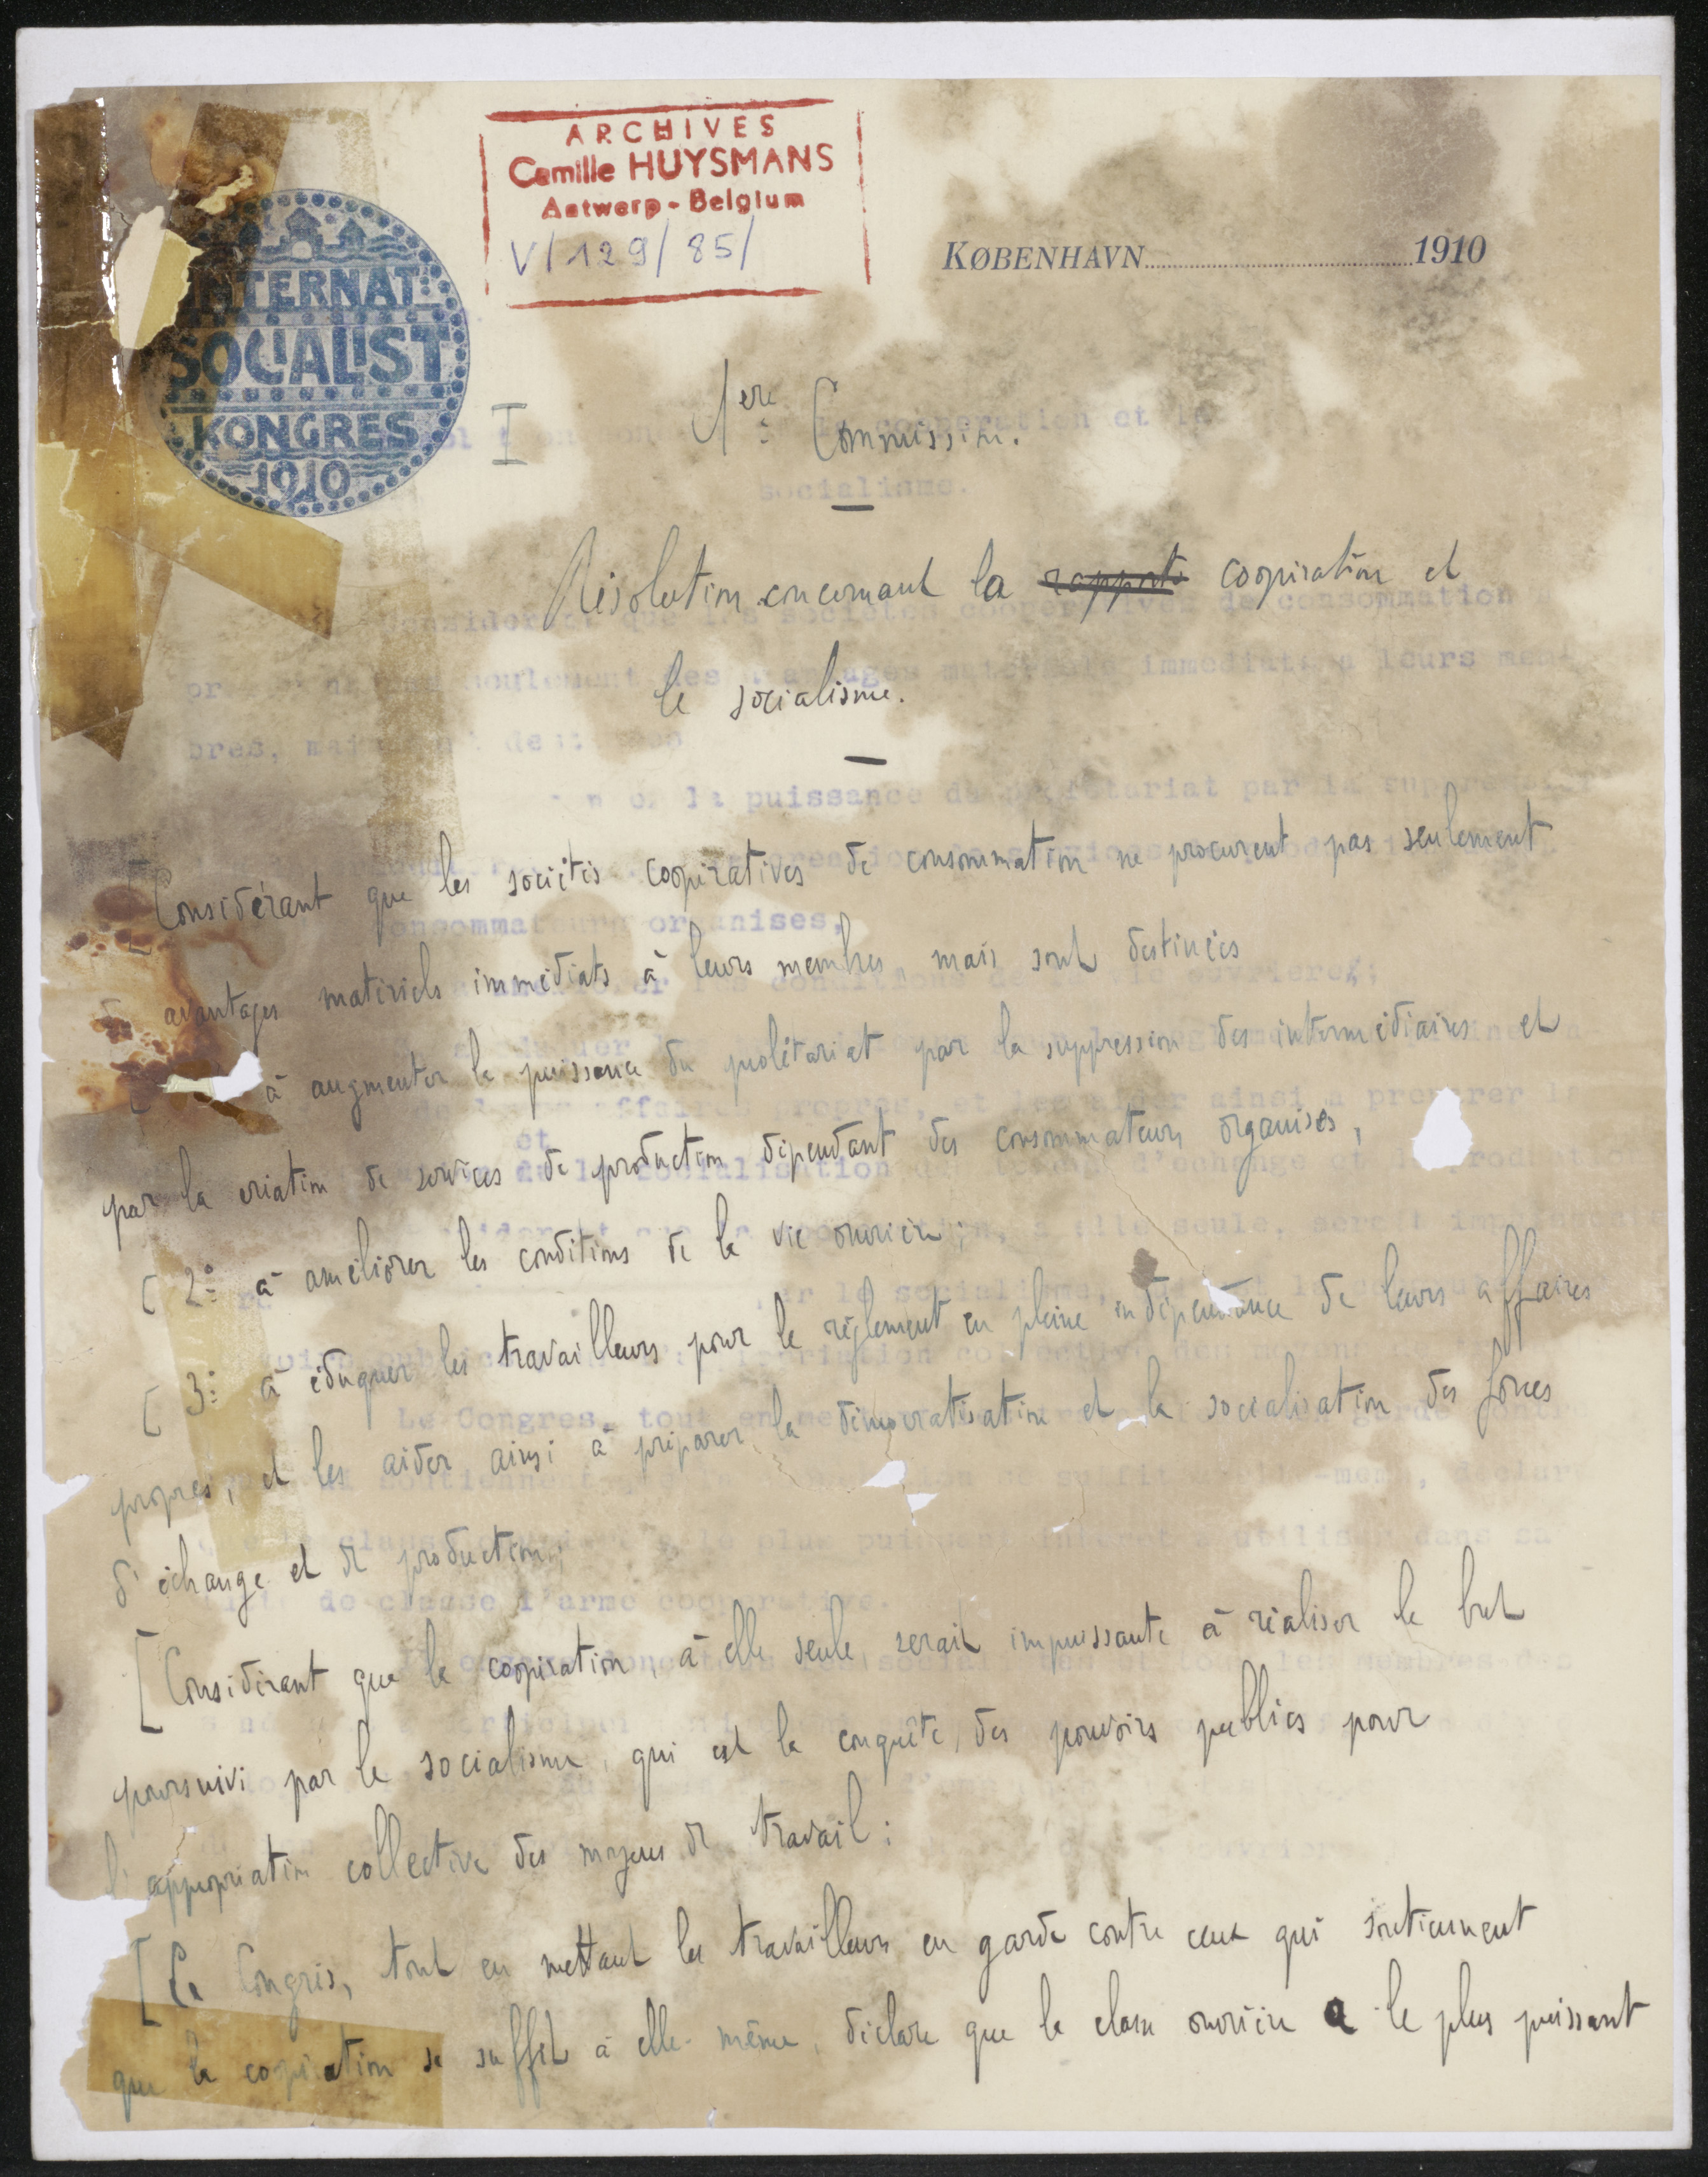 ARCHIVES
Camille HUYSMANS
Antwerp - Belgium
V/129/85/
KØBENHAVN 1910
INTERNAT
SOCIALIST
KONGRES
1910
I
1ère Commission.
Résolution concernant la rapports coopération et
le socialisme.
[Considérant que les sociétés coopératives de consommation ne procurent pas seulement
d'avantages matériels immédiats à leurs membres, mais sont destinées
[ à augmenter la puissance du prolétariat par la suppression des intermédiaires et
par la création de services de production dépendant des consommateurs organisés,
[ 2º à améliorer les conditions de la vie ouvrière;
[ 3º à éduquer les travailleurs pour le règlement en pleine indépendance de leurs affaires
propres, et les aider ainsi à préparer la démocratisation et la socialisation des forces
d'échange et de production;
[Considérant que la coopération, à elle seule, serait impuissante à réaliser le but
poursuivi par le socialisme, qui est la conquête des pouvoirs publics pour
l'appropriation collective des moyens de travail:
[Le Congrès, tout en mettant les travailleurs en garde contre ceux qui soutiennent
que la coopération se suffit à elle-même, déclare que la classe ouvrière a le plus puissant